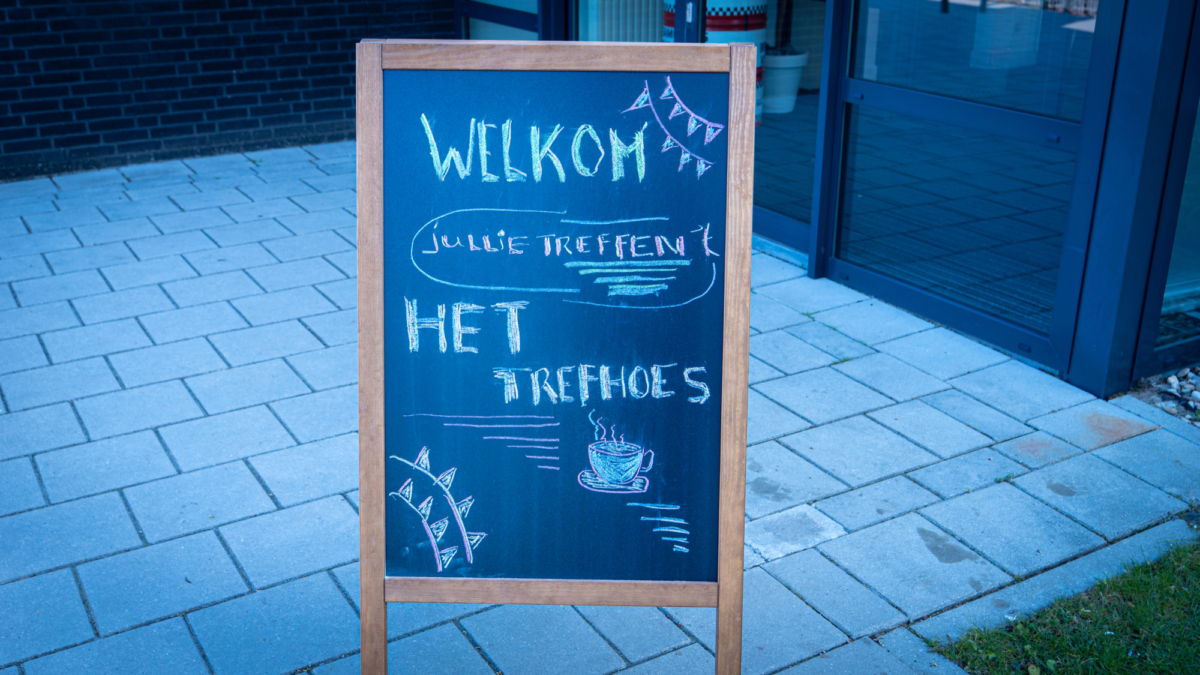 WELKOM
JULLIE TREFFEN 't
HET
TREFHOES